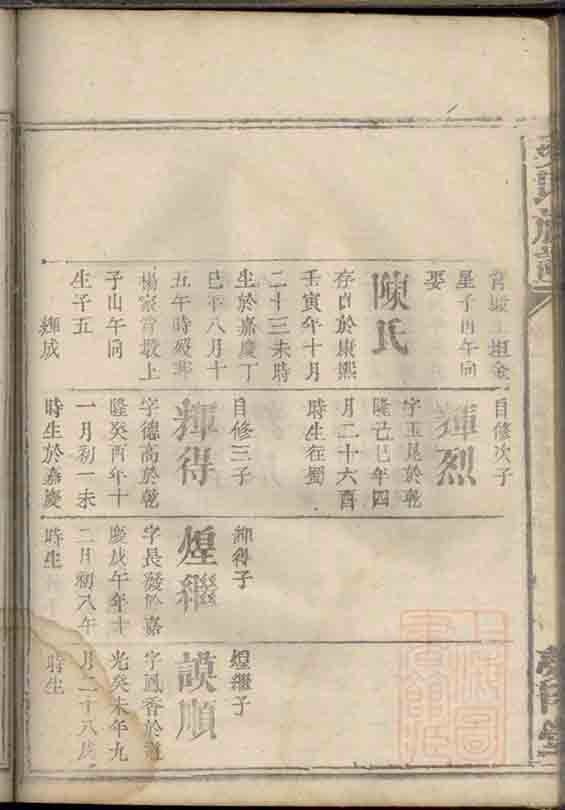 星子山午向
娶
陳氏
存自於康熙
壬寅年十月
二十三未時
生於嘉慶丁
巳年八月十
五午時歿葬
楊家嘗墩上
子山午向
生子五
輝成
自修次子
輝烈
字玉崑於乾
隆己巳年四
月二十六酉
時生在蜀
自修三子
輝得
字德高於乾
隆癸酉年十
一月初一未
時生於嘉慶
輝得子
煌繼
字長發於嘉
慶戊午年十
二月初八午
時生
煌繼子
謨順
字鳳香於道
光癸未年九
月二十八戌
時生